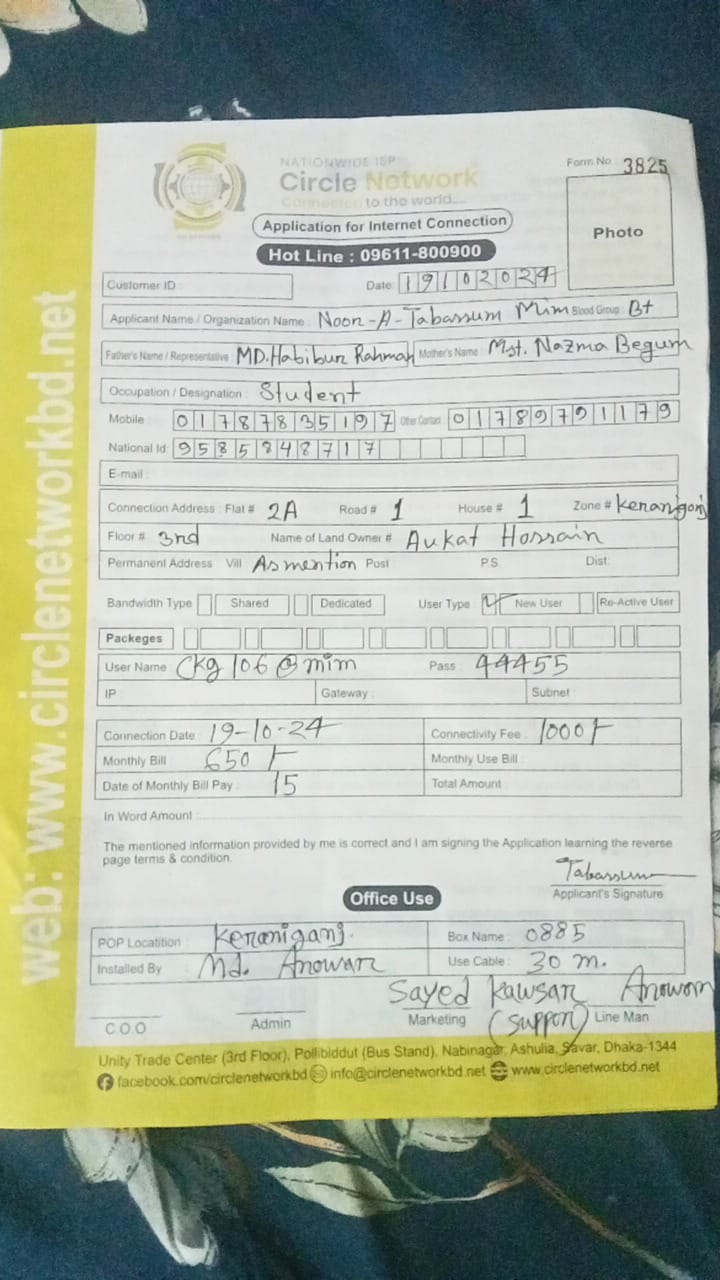 NATIONWIDE ISP
Circle Network
Connected to the world....
Form No 3825
Application for Internet Connection
Photo
Hot Line : 09611-800900
Customer ID : Date: 19102024
Applicant Name / Organization Name : Noor-A-Tabassum Mim Blood Group: B+
Father's Name / Representative MD. Habibur Rahman Mother's Name : Mst. Nazma Begum
Occupation / Designation : Student
Mobile : 01787835197 Other Contact : 01789791179
National Id: 9585848717
E-mail :
Connection Address : Flat # 2A Road # 1 House # 1 Zone # Keraniganj
Floor # 3rd Name of Land Owner # Aukat Hossain
Permanent Address Vill As mention Post P.S. Dist:
Bandwidth Type Shared Dedicated User Type New User Re-Active User
Packeges
User Name Ckg 106 @ mim Pass : 44455
IP Gateway : Subnet :
Connection Date : 19-10-24 Connectivity Fee : 1000/-
Monthly Bill 650/- Monthly Use Bill :
Date of Monthly Bill Pay : 15 Total Amount :
In Word Amount :
The mentioned information provided by me is correct and I am signing the Application learning the reverse
page terms & condition.
Tabassum
Applicant's Signature
Office Use
POP Locatition : Keraniganj. Box Name : 0885
Installed By : Md. Anowar Use Cable : 30 m.
Sayed Kawsar Anowar
C.O.O Admin Marketing (Support) Line Man
Unity Trade Center (3rd Floor), Pollibiddut (Bus Stand), Nabinagar, Ashulia, Savar, Dhaka-1344
facebook.com/circlenetworkbd info@circlenetworkbd.net www.circlenetworkbd.net
web: www.circlenetworkbd.net